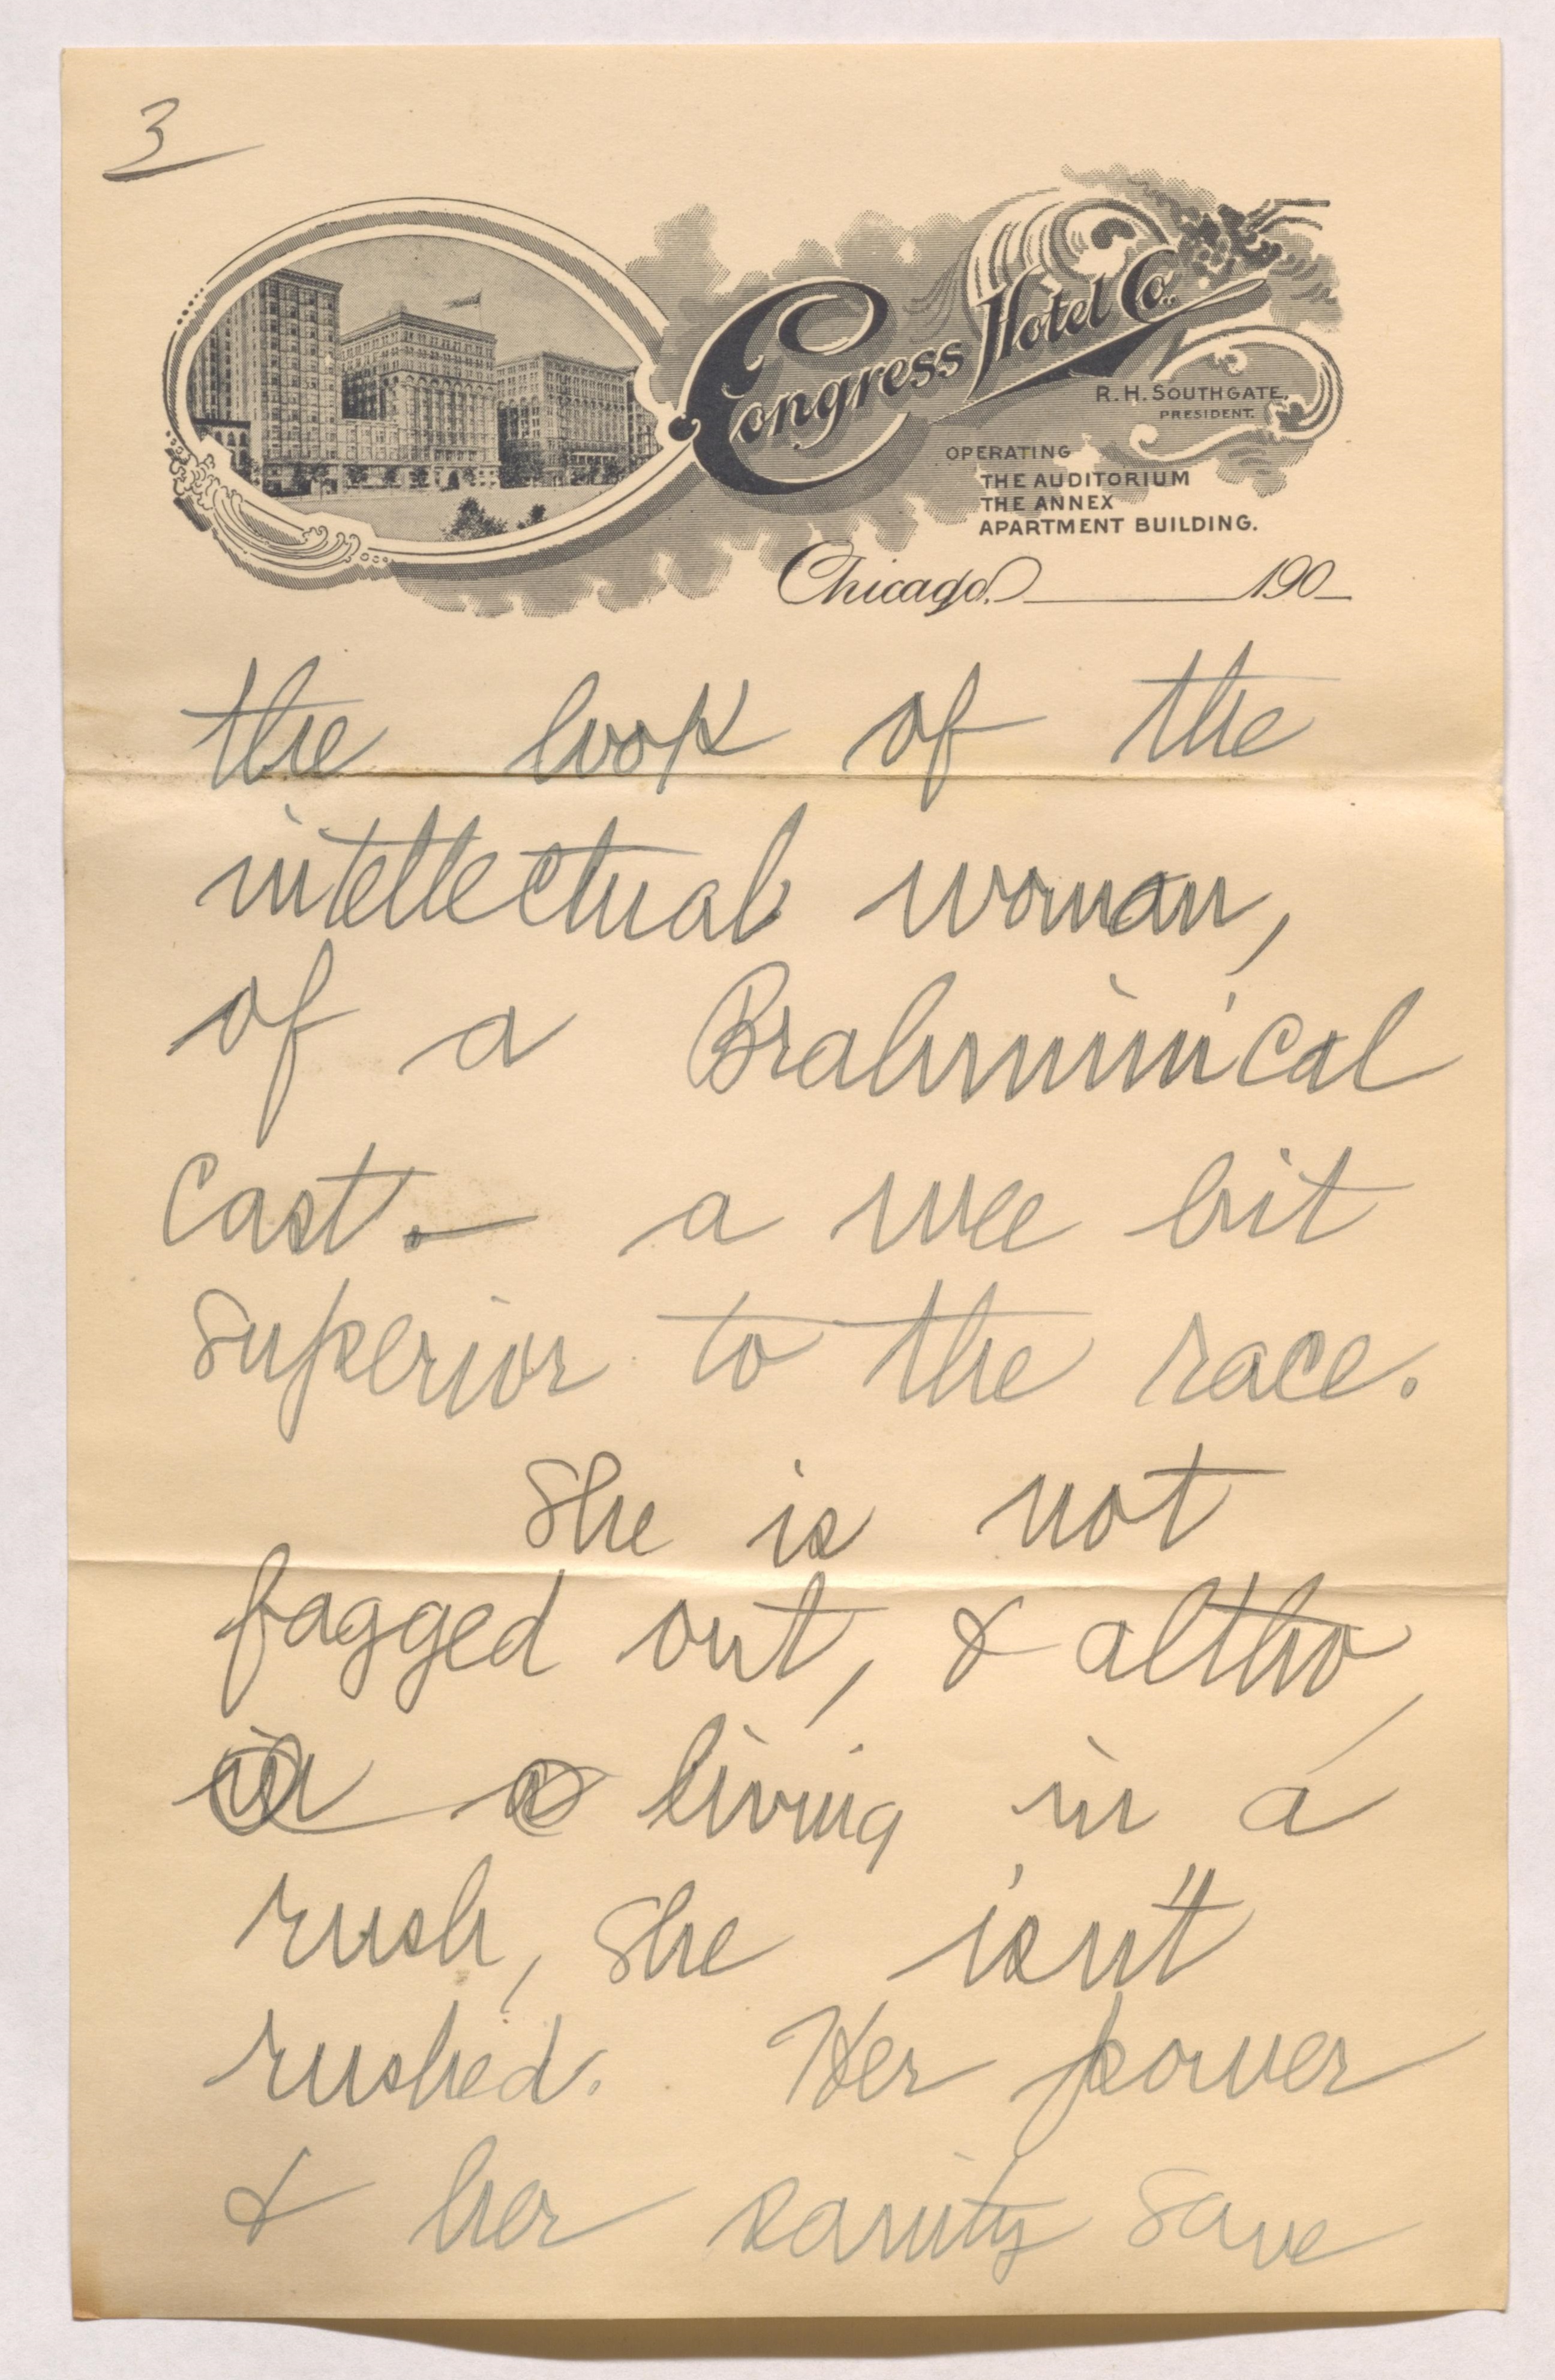 3
Congress Hotel Co.
R. H. SOUTHGATE,
PRESIDENT.
OPERATING
THE AUDITORIUM
THE ANNEX
APARTMENT BUILDING.
Chicago. 190
the look of the
intellectual woman,
of a Brahminical
cast. — a wee bit
superior to the race.
She is not
fagged out, & altho,
in a living in a
rush, she isn't
rushed. Her power
& her sanity save